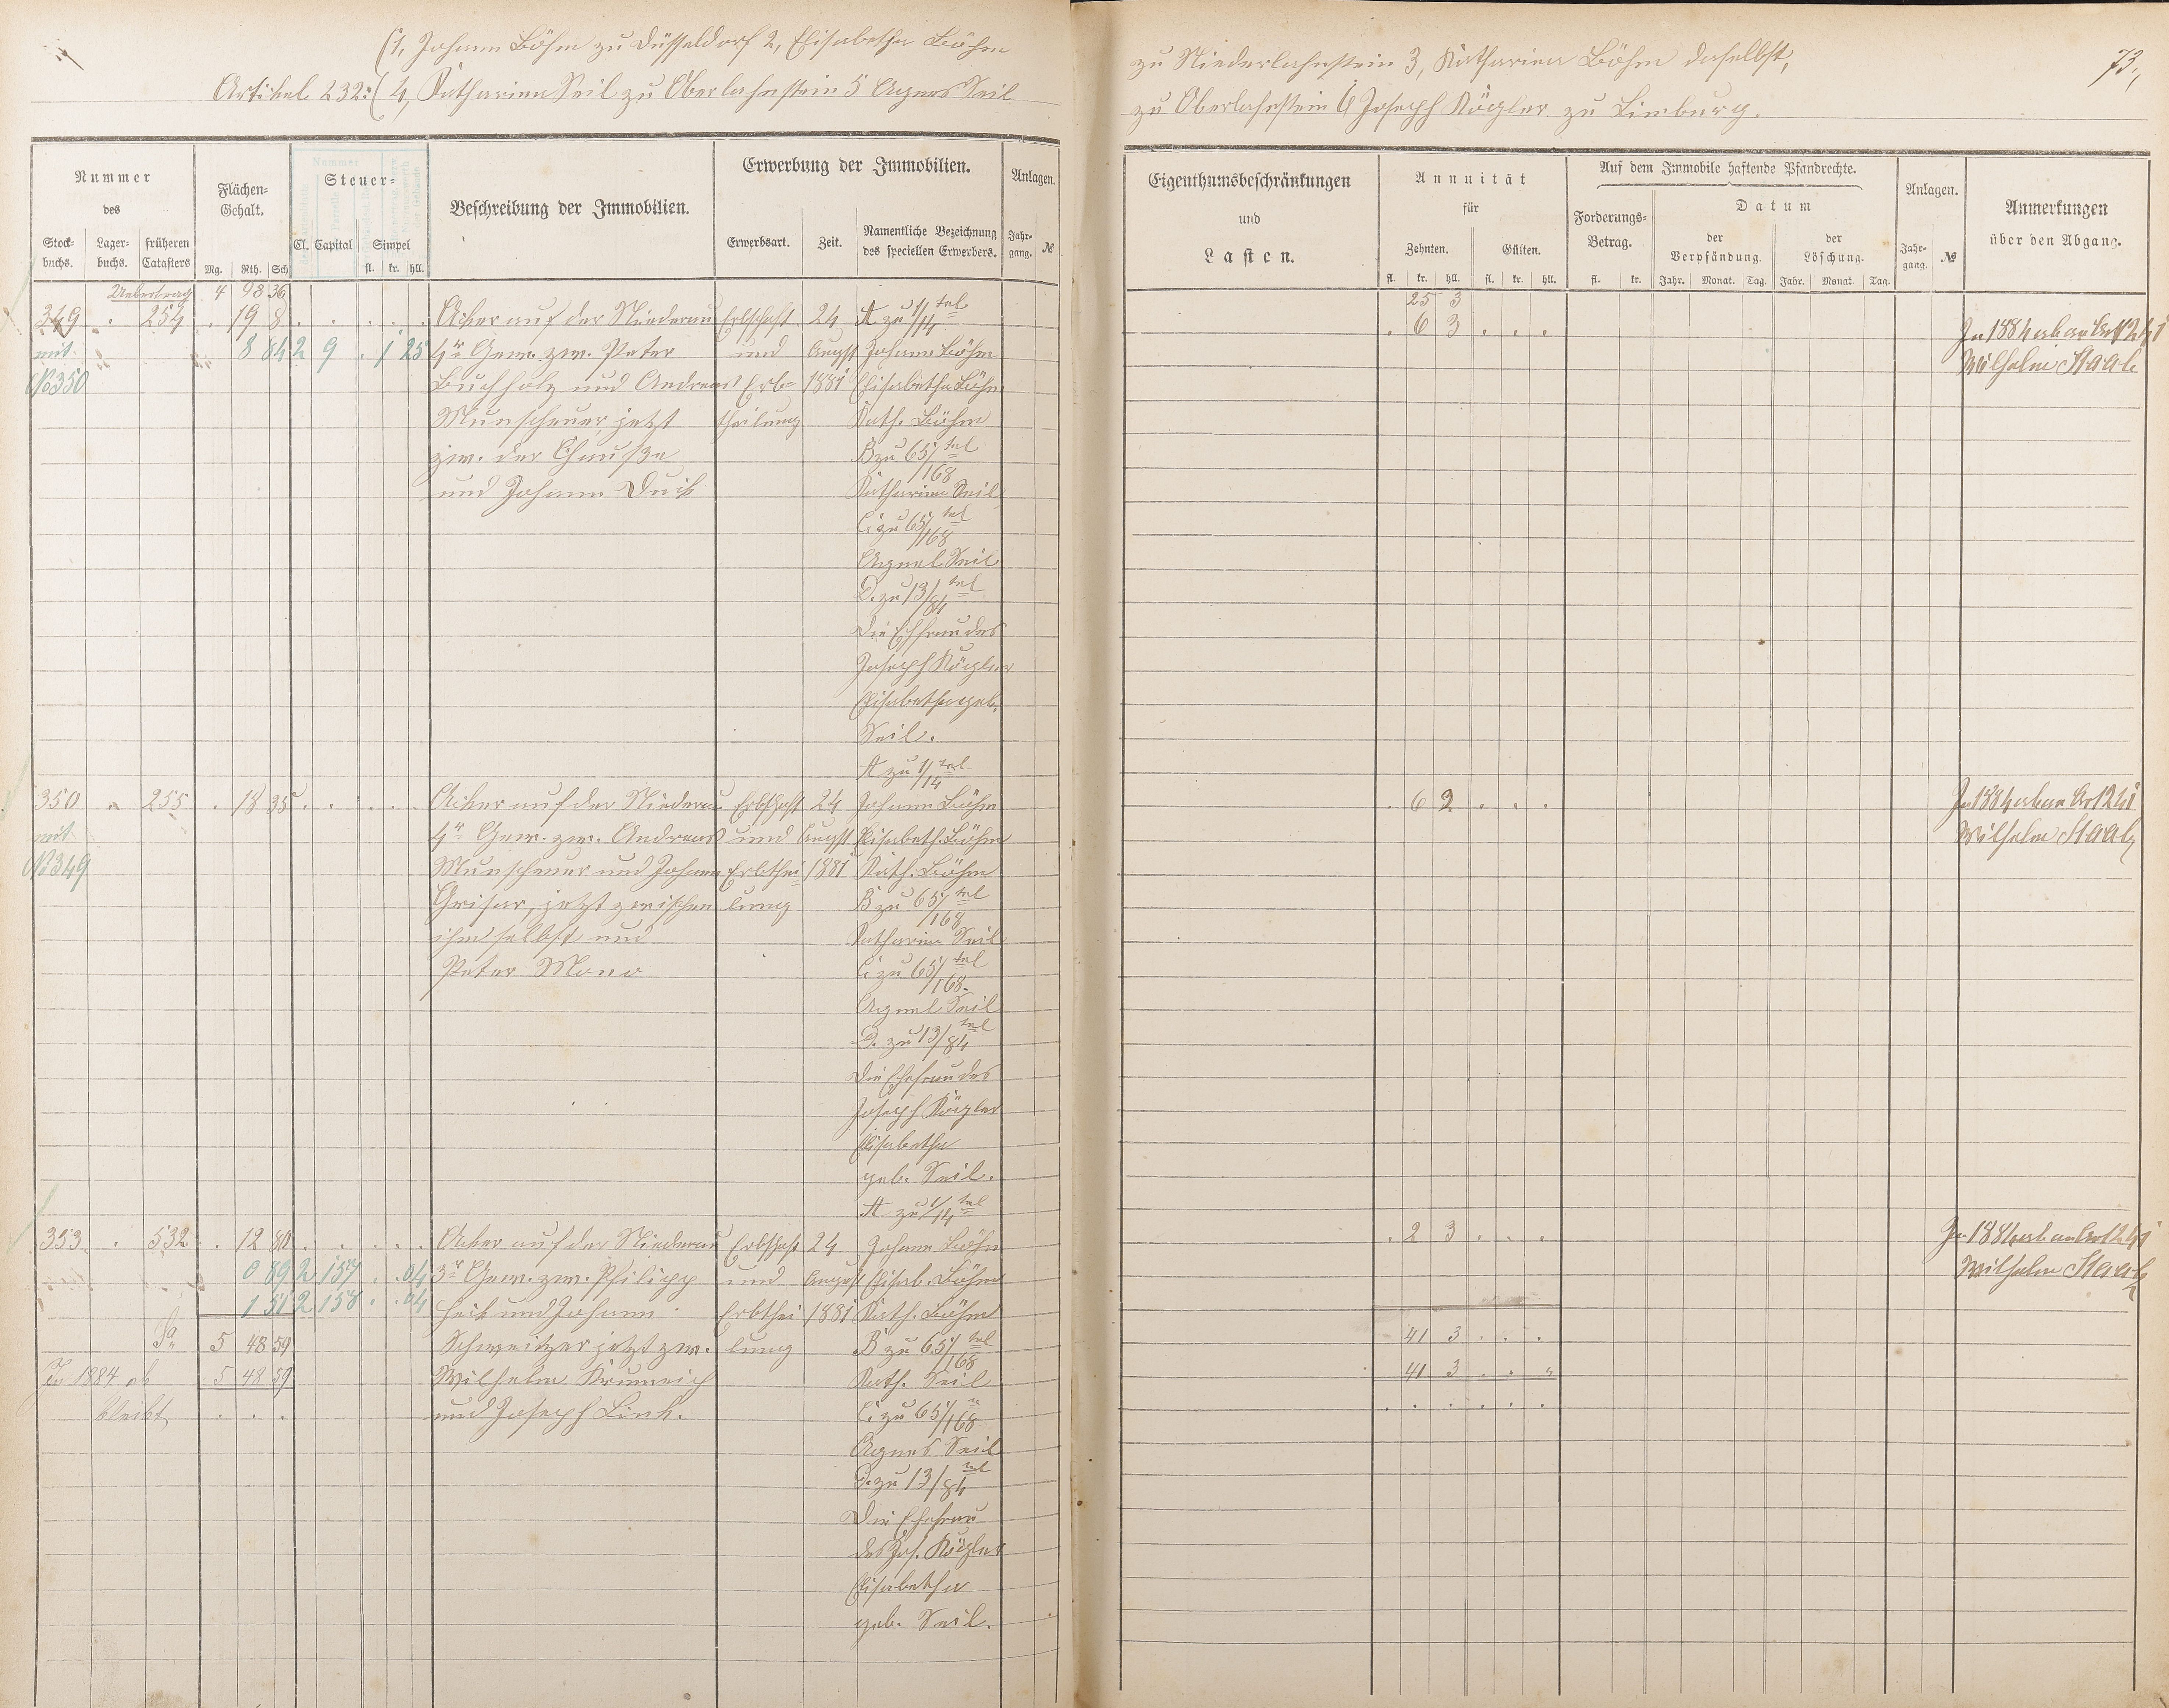 (1, Johann Böhm zu Düsseldorf 2, Elisabetha Böhm
Artikel 232. (4, Katharina Seil zu Oberlahnstein 5 Agnes Seil
zu Niederlahnstein 3, Katharina Böhm daselbst,
73.
zu Oberlahnstein 6 Joseph Kögler zu Limburg.
Nummer
des
Stock-
buchs.
Lager-
buchs.
früheren
Catasters
Flächen-
Gehalt.
Mg. Rth. Sch
Steuer-
Cl. Capital Simpel
fl. kr. hll.
Beschreibung der Immobilien.
Erwerbung der Immobilien.
Erwerbsart.
Zeit.
Namentliche Bezeichnung
des speciellen Erwerbers.
Anlagen.
Jahr-
gang.
№
Eigenthumsbeschränkungen
und
Lasten.
Annuität
für
Zehnten. Gülten.
fl. kr. hll. fl. kr. hll.
Auf dem Immobile haftende Pfandrechte.
Forderungs-
Betrag.
fl. kr.
Datum
der
Verpfändung.
Jahr. Monat. Tag.
der
Löschung.
Jahr. Monat. Tag.
Anlagen.
Jahr-
gang.
№
Anmerkungen
über den Abgang.
Uebertrag 4 98 36
25 3
349 . 254 . 19 8 . . . . . Acker auf der Niederau Erbschaft 24 A zu 1/14 tel
. 6 3 . . .
mit 8 84 2 9 . 1 25 4r Gew. zw. Peter und Augst Johann Böhm
No 350 Buchholz und Andreas Erb- 1881 Elisabetha Böhm
Munscheuer, jetzt theilung Kath. Böhm
zw. der Chaussee B zu 65/168 tel
und Johann Katharina Seil
C. zu 65/168 tel
Agnes Seil
D. zu 13/84 tel
Die Ehefrau des
Joseph Kögler
Elisabetha geb.
Seil.
In 1884 ab an Art 241
Wilhelm
A zu 1/14 tel
350 " 255 . 18 35 . . . . . Acker auf der Niederau Erbschaft 24 Johann Böhm
. 6 2 . . .
mit 4r Gew. zw. Andreas und Augst Elisabeth. Böhm
No 349 Munscheuer und Johann Erbthei- 1881 Kath. Böhm
jetzt zwischen lung B zu 65/168 tel
ihm selbst und Katharina Seil
Peter C. zu 65/168 tel
Agnes Seil
D. zu 13/84 tel
Die Ehefrau des
Joseph Kögler
Elisabetha
geb. Seil.
In 1884 ab an Art 241
Wilhelm
A zu 1/14 tel
353 . 532 . 12 80 . . . . . Acker auf der Niederau Erbschaft 24 Johann Böhm
. 2 3 . . .
0 89 2 157 . . 04 3r Gew. zw. Philipp und August Elisab. Böhm
1 51 2 158 . . 04 und Johann Erbthei 1881 Kath. Böhm
Sa 5 48 59 Schweitzer jetzt zw. lung B zu 65/168 tel
41 3 . . .
In 1884 ab 5 48 59 Wilhelm Kath. Seil
41 3 . . "
bleibt . . . und Joseph Link. C. zu 65/168
. . . . . .
Agnes Seil
D. zu 13/84 tel
Die Ehefrau
des Jos. Kögler
Elisabetha
geb. Seil.
In 1884 ab an Art 241
Wilhelm